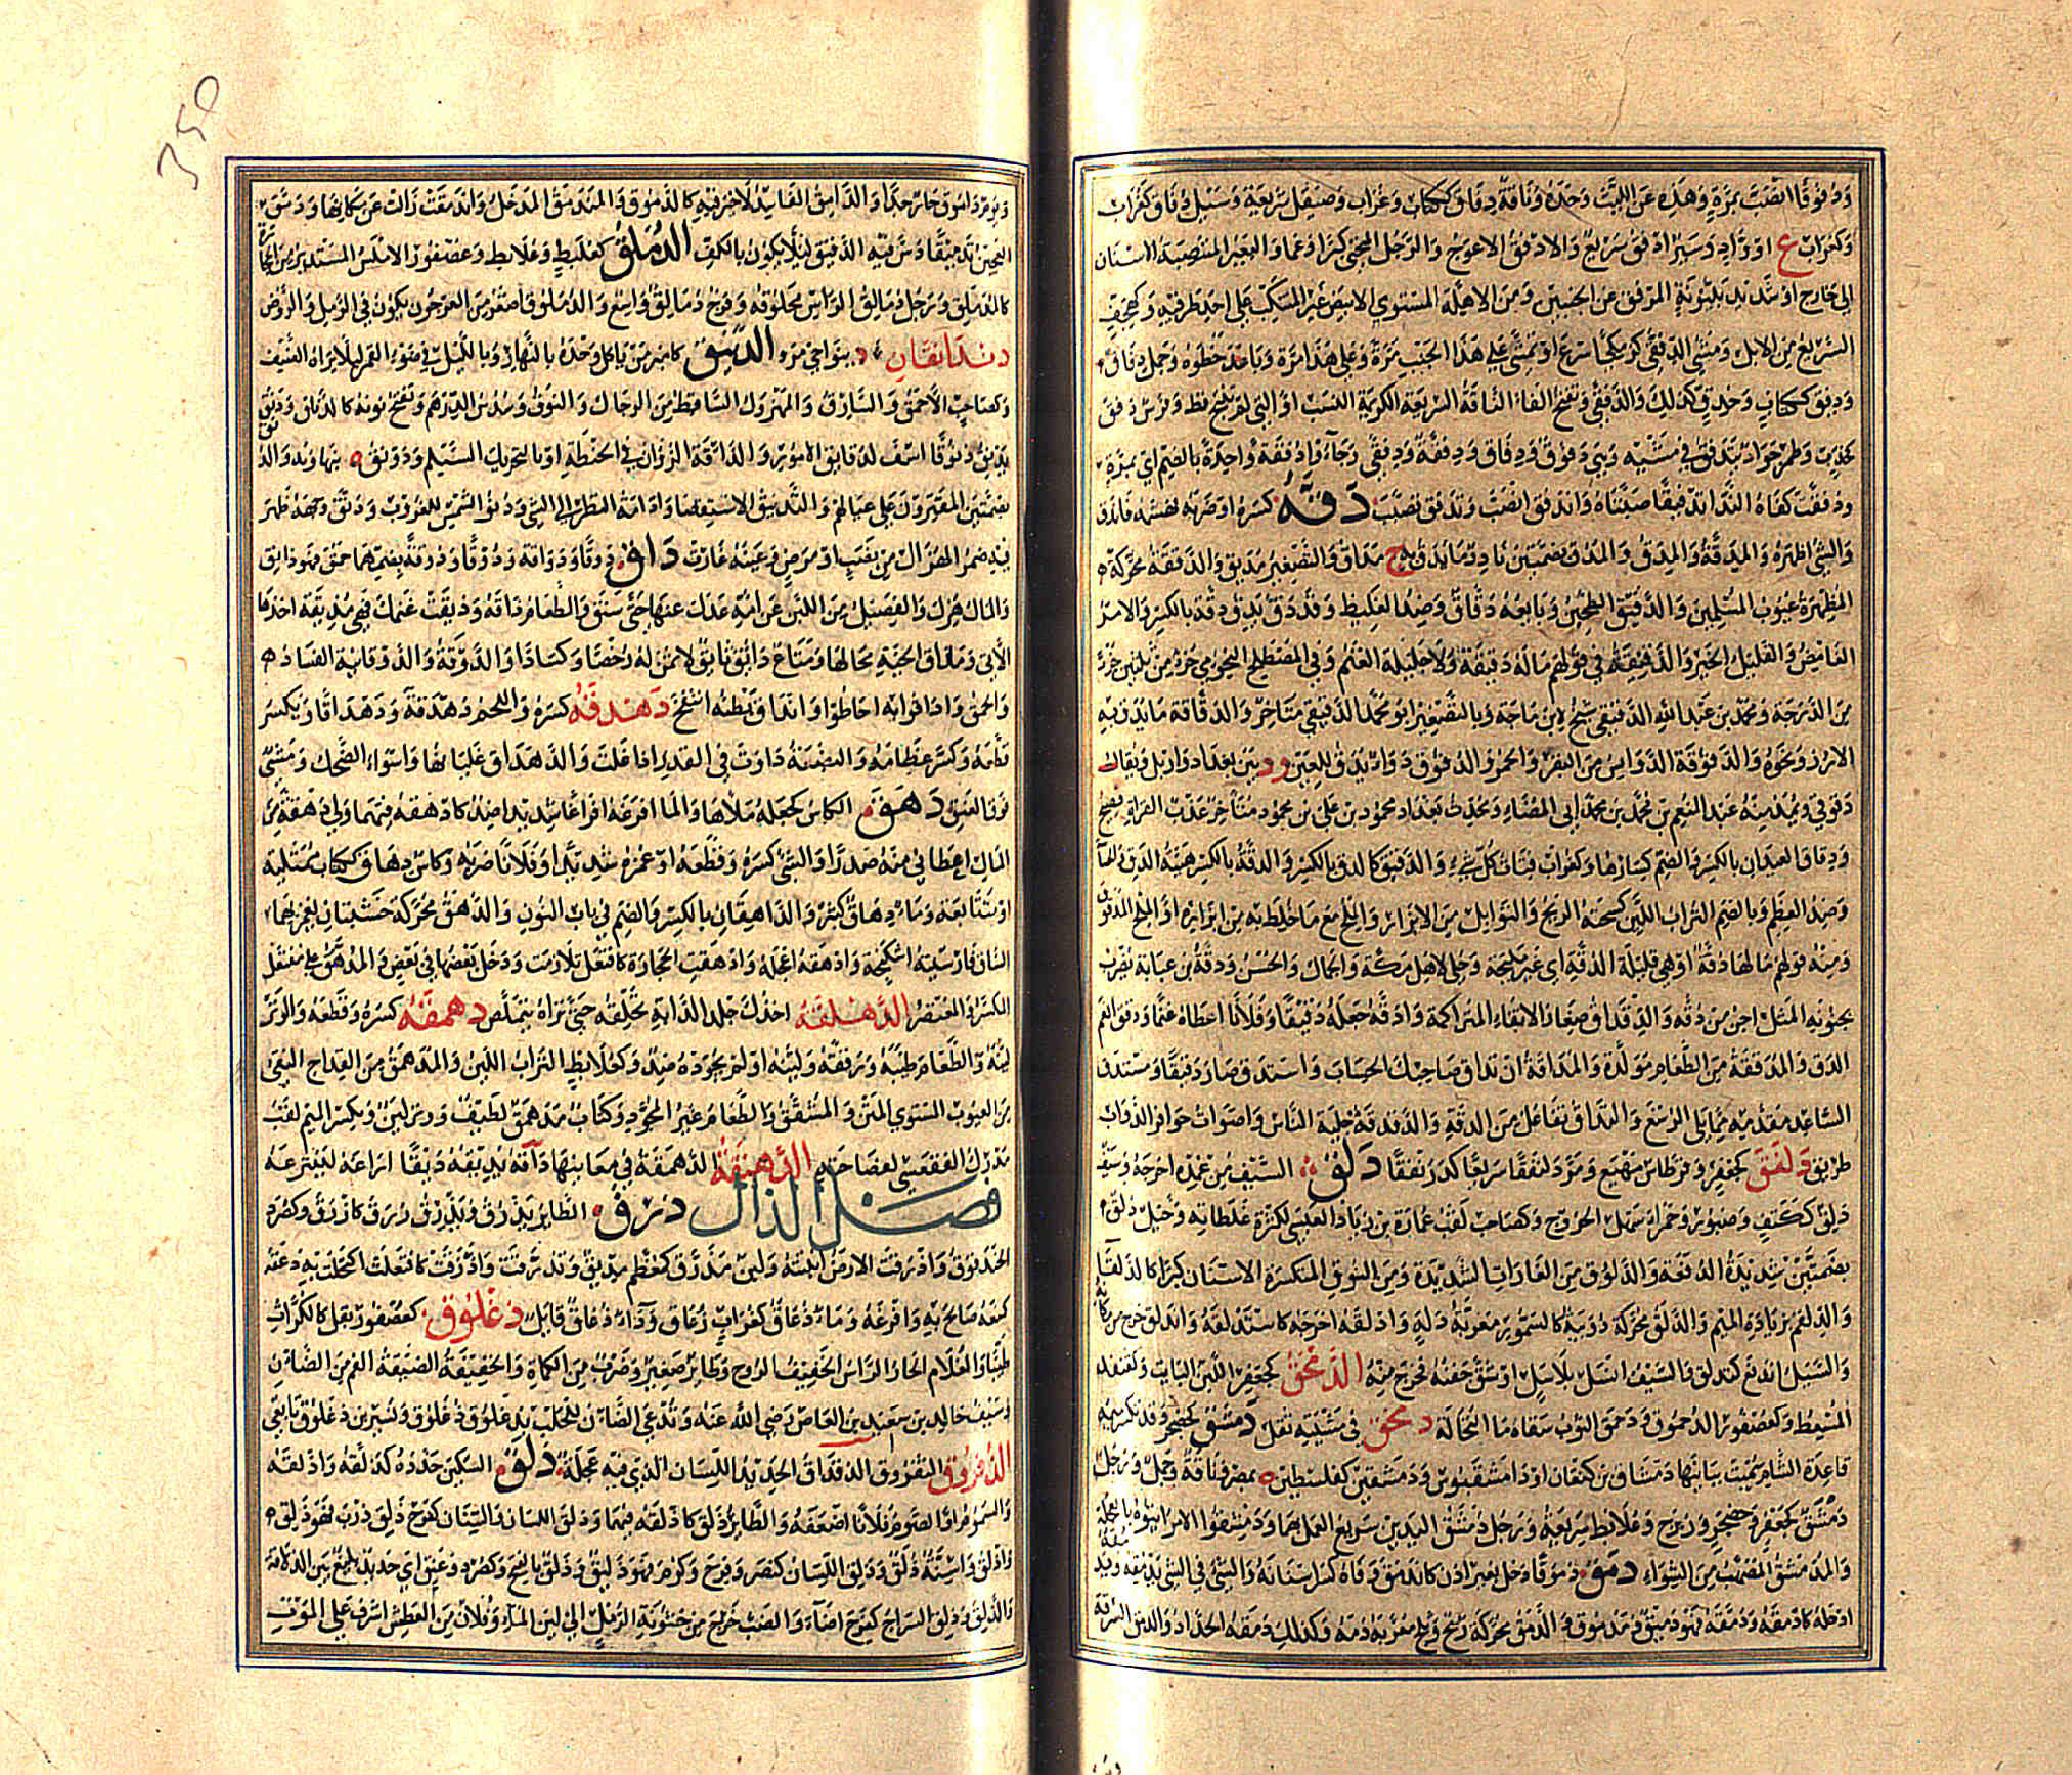 ودفوقا انصب بمرة وهذه عن الليث وحده وناقة دفاق ككتاب وغراب وصيقل سريعة وسيل دفاق كغراب
وكغراب ع او واد وسير ادفق سريع والادفق الاعوج والرجل المنحنى كبرا وغما والبعير المنتصبة الاسنان
الى خارج او شديد بينونة المرفق عن الجنبين ومن الاهلة المستوى الابيض غير المتنكب على احد طرفيه وكهجف
السريع من الابل ومشى الدفقى كزمكى اسرع او تمشى على هذا الجنب مرة وعلى هذا مرة وباعد خطوه وجمل دفاق
ودفق ككتاب وخدب كذلك والدفقى وتفتح الفاء الناقة السريعة الكريمة النسب او التى لم تنتج قط وفرس دفق
كخدب وطمر جواد يتدفق فى مشيه وهى دفوق ودفاق ودفقة ودفقى وجاؤا دفقة واحدة بالضم اى بمرة
ودفقت كفاه الندا تدفيقا صبتاه واندفق انصب وتدفق تصبب دقه كسره او ضربه فهشمه فاندق
والشئ اظهره والمدقة والمدق والمدق بضمتين نادر ما يدق به ج مداق والتصغير مديق والدققة محركة
المظهرة عيوب المسلمين والدقيق الطحين وبايعه دقاق وضد الغليظ وقد دق يدق دقة بالكسر والامر
الغامض والقليل الخير والدقيقة فى قولهم ماله دقيقة ولا جليلة الغنم وفى المصطلح النجومى جزء من ثلثين جزءا
من الدرجة ومحمد بن عبد الله الدقيقى شيخ لابن ماجة وبالتصغير ابو محمد الدقيقى متاخر والدقاقة ما يدق به
الارز ونحوه والدقوقة الدوايس من البقر والحمر والدقوق دواء يدق للعين ود بين بغداد واربل ويقال
دقوقى وبمدينه عبد المنعم بن محمد بن محمد ابى المضاء ومحدث بغداد محمود بن على بن محمود متاخر عذب القراة فصيح
ودقاق العيدان بالكسر والضم كسارها وكغراب فتات كل شئ والدقيق كالدق بالكسر والدقة بالكسر هيئة الدق
وضد العظم وبالضم التراب اللين كسحته الريح والتوابل من الابزار والملح مع ما خلط به من ابزاره او الملح المدقوق
ومنه قولهم مالها دقة او هى قليلة الدقة اى غير مليحة وحلى لاهل مكة والجمال والحسن ودقة بن عبابة يضرب
بجنونه المثل اجن من دقة والدقداق صغار الانقاء المتراكمة وادقه جعله دقيقا وفلانا اعطاه غنما ودقق انعم
الدق والمدققة من الطعام مولدة والمداقة ان تداق صاحبك الحساب واستدق صار دقيقا ومستدق
الساعد مقدمه مما يلى الرسغ والتداق تفاعل من الدقة والدقدقة جلبة الناس واصوات حوافر الدواب
طريق دلفق كجعفر وقرطاس مهيع ومر دلنفقا سريعا كدرنفقا دلق السيف من غمده اخرجه وسيف
دلق ككتف وصبور وحمراء سهل الخروج وكصاحب لقب عمارة بن زياد العبسى لكثرة غلطاته وخيل دلق
بضمتين شديدة الدفعة والدلوق من الغارات الشديدة ومن النوق المنكسرة الاسنان كبرا كالدلقاء
والدلقم بزيادة الميم والدلق محركة دويبة كالسمور معربة دله وادلقه اخرجه كاستدلقه واندلق خرج من مكانه
والسيل اندفع كتدلق والسيف انسل بلا سل او شق جفنه فخرج منه الدمحق كجعفر اللبن البايت وكقنفذ
المسعط وكعصفور الدحموق ودحمق الثوب سقاه ماء النخالة دمخق فى مشيته ثقل دمشق كحضجر وقد تكسر ميمه
قاعدة الشام سميت ببانيها دمشاق بن كنعان او دامشقيوس ودمشقين كفلسطين ة بمصر وناقة وجمل ورجل
دمشق كجعفر وحضجر وزبرج وعلابط سريعة ورجل دمشق اليدين سريع العمل بهما ودمشقوا الامر ابتوه بالعجلة
والمدمشق المضهب من الشواء دمق دموقا دخل بغير اذن كاندمق وفاه كسر اسنانه والشئ فى الشئ يدمقه ويدمقه
ادخله كادمقه ودمقه فهو دميق ومدموق والدمق محركة ريح وثلج معربة دمه وكذلك دمقه الحداد والدمق السرقة
ويوم داموق حار جدا والدامق الفاسد لا خير فيه كالدموق والمندمق المدخل واندمقت زالت عن مكانها ودمق
العجين تدميقا دس فيه الدقيق لئلا يكون بالكف الدملق كعلبط وعلابط وعصفور الاملس المستدير من الحجارة
كالمدملق ورجل دمالق الراس محلوقه وفرج دمالق واسع والدملوق اصغر من العرجون يكون فى الرمل والروض
دندانقان د بنواحى مرو الدنيق كامير من ياكل وحده بالنهار وبالليل فى ضوء القمر لئلا يراه الضيف
وكصاحب الاحمق والسارق والمهزول الساقط من الرجال والنوق وسدس الدرهم وتفتح نونه كالداناق ودنق
يدنق دنوقا اسف لدقايق الامور والدانقة الزؤان فى الحنطة او بالتحريك الشيلم ودونق ة بنهاوند والدنق
بضمتين المقترون على عيالهم والتدنيق الاستقصا وادامة النظر الى الشئ ودنو الشمس للغروب ودنق وجهه ظهر
فيه ضمر الهزال من نصب او مرض وعينه غارت داق دوقا ودواقة ودؤوقا ودوقة بضمهما حمق فهو دايق
والمال هزل والفصيل من اللبن عن امه عدل عنها حتى سنق والطعام ذاقه ودقت غنمك فهى مديقة اخذها
الابى ومذاق الحية مجالها ومتاع دائق نائق لا ثمن له رخصا وكسادا والدوقة والدوقانية الفساد
والحمق وادافوا به احاطوا وانداق بطنه انتفخ دهدقه كسره واللحم دهدقة ودهداقا ويكسر
قطعه وكسر عظامه والبضعة دارت فى القدر اذا غلت والدهداق غليانها واسواء الضحك ومشى
فوق العنق دهق الكاس كجعله ملاها والما افرغه افراغا شديدا ضد كادهقه فيهما ولى دهقة من
المال اعطانى منه صدرا والشئ كسره وقطعه او غمزه شديدا وفلانا ضربه وكاس دهاق ككتاب ممتلئة
او متتابعة وماء دهاق كثير والدهقان بالكسر والضم فى باب النون والدهق محركة خشبتان يغمز بهما
الساق فارسيته اشكنجة وادهقه اعجله وادهقت الحجارة كافتعل تلازمت ودخل بعضها فى بعض والمدهق على مفتعل
المكسر والمعتصر الدهلقة اخذك جلد الدابة تحلقه حتى تراه يتملص دهمقه كسره وقطعه والوتر
لينه والطعام طيبه ورققه ولينه او لم يجوده ضد وكعلابط التراب اللين والمدهمق من القداح النقى
من العيوب المستوى المتن والمشقق والطعام غير المجود وكتاب مدهمق لطيف ووتر لين وبكسر الميم لقب
مدرك الفقعسى لفصاحته الدهنقة الدهمقة فى معانيها داقه يديقه ديقا اراغه لينتزعه
فصل الذال ذرق الطاير يذرق ويذرق زرق كاذرق وكصرد
الحندقوق واذرقت الارض انبتته ولبن مذرق كمعظم مذيق وتذرقت واذرقت كافتعلت اكتحلت به ذعقه
كمنعه صاح به وافزعه وماء ذعاق كغراب زعاق وداء ذعاق قاتل ذعلوق كعصفور بقل كالكراث
طيبا والغلام الحار الراس الخفيف الروح وطاير صغير وضرب من الكماة والخفيفة الضيقة الفم من الضان
وسيف خالد بن سعيد بن العاص رضى الله عنه وتدعى الضان للحلب بذعلوق ذعلوق ونسير بن ذعلوق تابعى
الذفروق الثفروق الذقذاق الحديد اللسان الذى فيه عجلة ذلق السكين حدده كذلقه واذلقه
والسموم او الصوم فلانا اضعفه والطاير ذرق كاذلقه فيهما وذلق اللسان والسنان كفرح ذلق ذرب فهو ذلق
واذلق واسنة ذلق وذلق اللسان كنصر وفرح وكرم فهو ذليق وذلق بالفتح وكصرد وعنق اى حديد بليغ بين الذلاقة
والذلق وذلق السراج كفرح اضاء والضب خرج من خشونة الرمل الى لين الماء وفلان من العطش اشرف على الموت